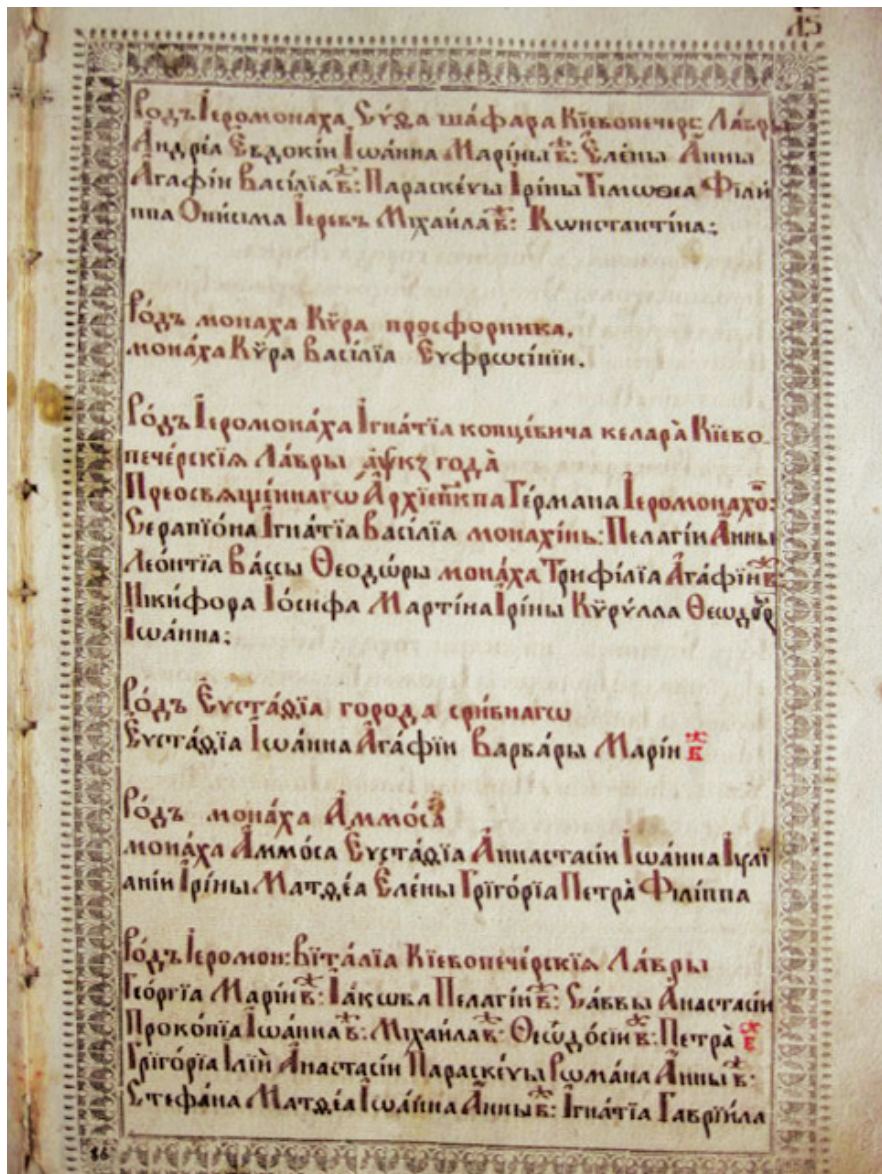 Ро́дъ І҆еромона́ха Сѵ́ѳа ша́фара Кїевопечерс: Ла́вры
А҆ндре́а Е҆вдокі́и І҆ѡа́нна Марі́ны в҃: Е҆ле́ны А҆́нны
А҆га́фїи Васі́лїа в҃: Параске́ѵы І҆рі́ны Тімоѳеа Філи́
ппа Ѻни́сїма І҆ере́въ Міхаи́ла в҃: Кѡнстанті́на:
Ро́дъ мона́ха Кѵ́ра просфорника.
мона́ха Кѵ́ра Васі́лїа Еѵфрѡсі́нїи.
Ро́дъ І҆еромона́ха І҆гна́тїа копце́вича келара̀ Кїево
пече́рскїѧ Ла́вры ҂аѱк҃з года̀
Преосвѧще́ннагѡ А҆рхїеп҃кпа Ге́рмана І҆еромона́хѡ:
Серапїо́на І҆гна́тїа Васі́лїа мона́хінь: Пелагі́и А҆́нны
Лео́нтїа Ва́ссы Ѳеодѡ́ры мона́ха Трифі́лїа А҆га́фїи в҃:
Ники́фора І҆о́сифа Марті́на І҆рі́ны Кѵрі́лла Ѳеѡдѡр
І҆ѡа́нна:
Ро́дъ Е҆ѵста́ѳїа города сри́бнагѡ
Е҆ѵста́ѳїа І҆ѡа́нна А҆га́фїи Варва́ры Марі́и в҃
Ро́дъ мона́ха А҆ммо́са
мона́ха А҆ммо́са Е҆ѵста́ѳїа А҆ннастасі́и І҆ѡа́нна І҆ꙋлї
анї́и І҆рі́ны Матѳе́а Е҆ле́ны Грїго́рїа Петра̀ Філі́ппа
Ро́дъ І҆еромон: Віта́лїа Кїевопече́рскїѧ Ла́вры
Гео́ргїа Марі́и в҃: І҆а́кѡва Пелагі́и в҃: Са́ввы А҆настасі́и
Проко́пїа І҆ѡа́нна в҃: Міхаи́ла в҃: Ѳеѡдо́сїи в҃: Петра̀ в҃
Грїго́рїа І҆лїи̂ А҆настасі́и Параске́ѵы Рѡма́на А҆́нны в҃:
Стефа́на Матѳе́а І҆ѡа́нна А҆́нны в҃: І҆гна́тїа Гаврїи́ла
86